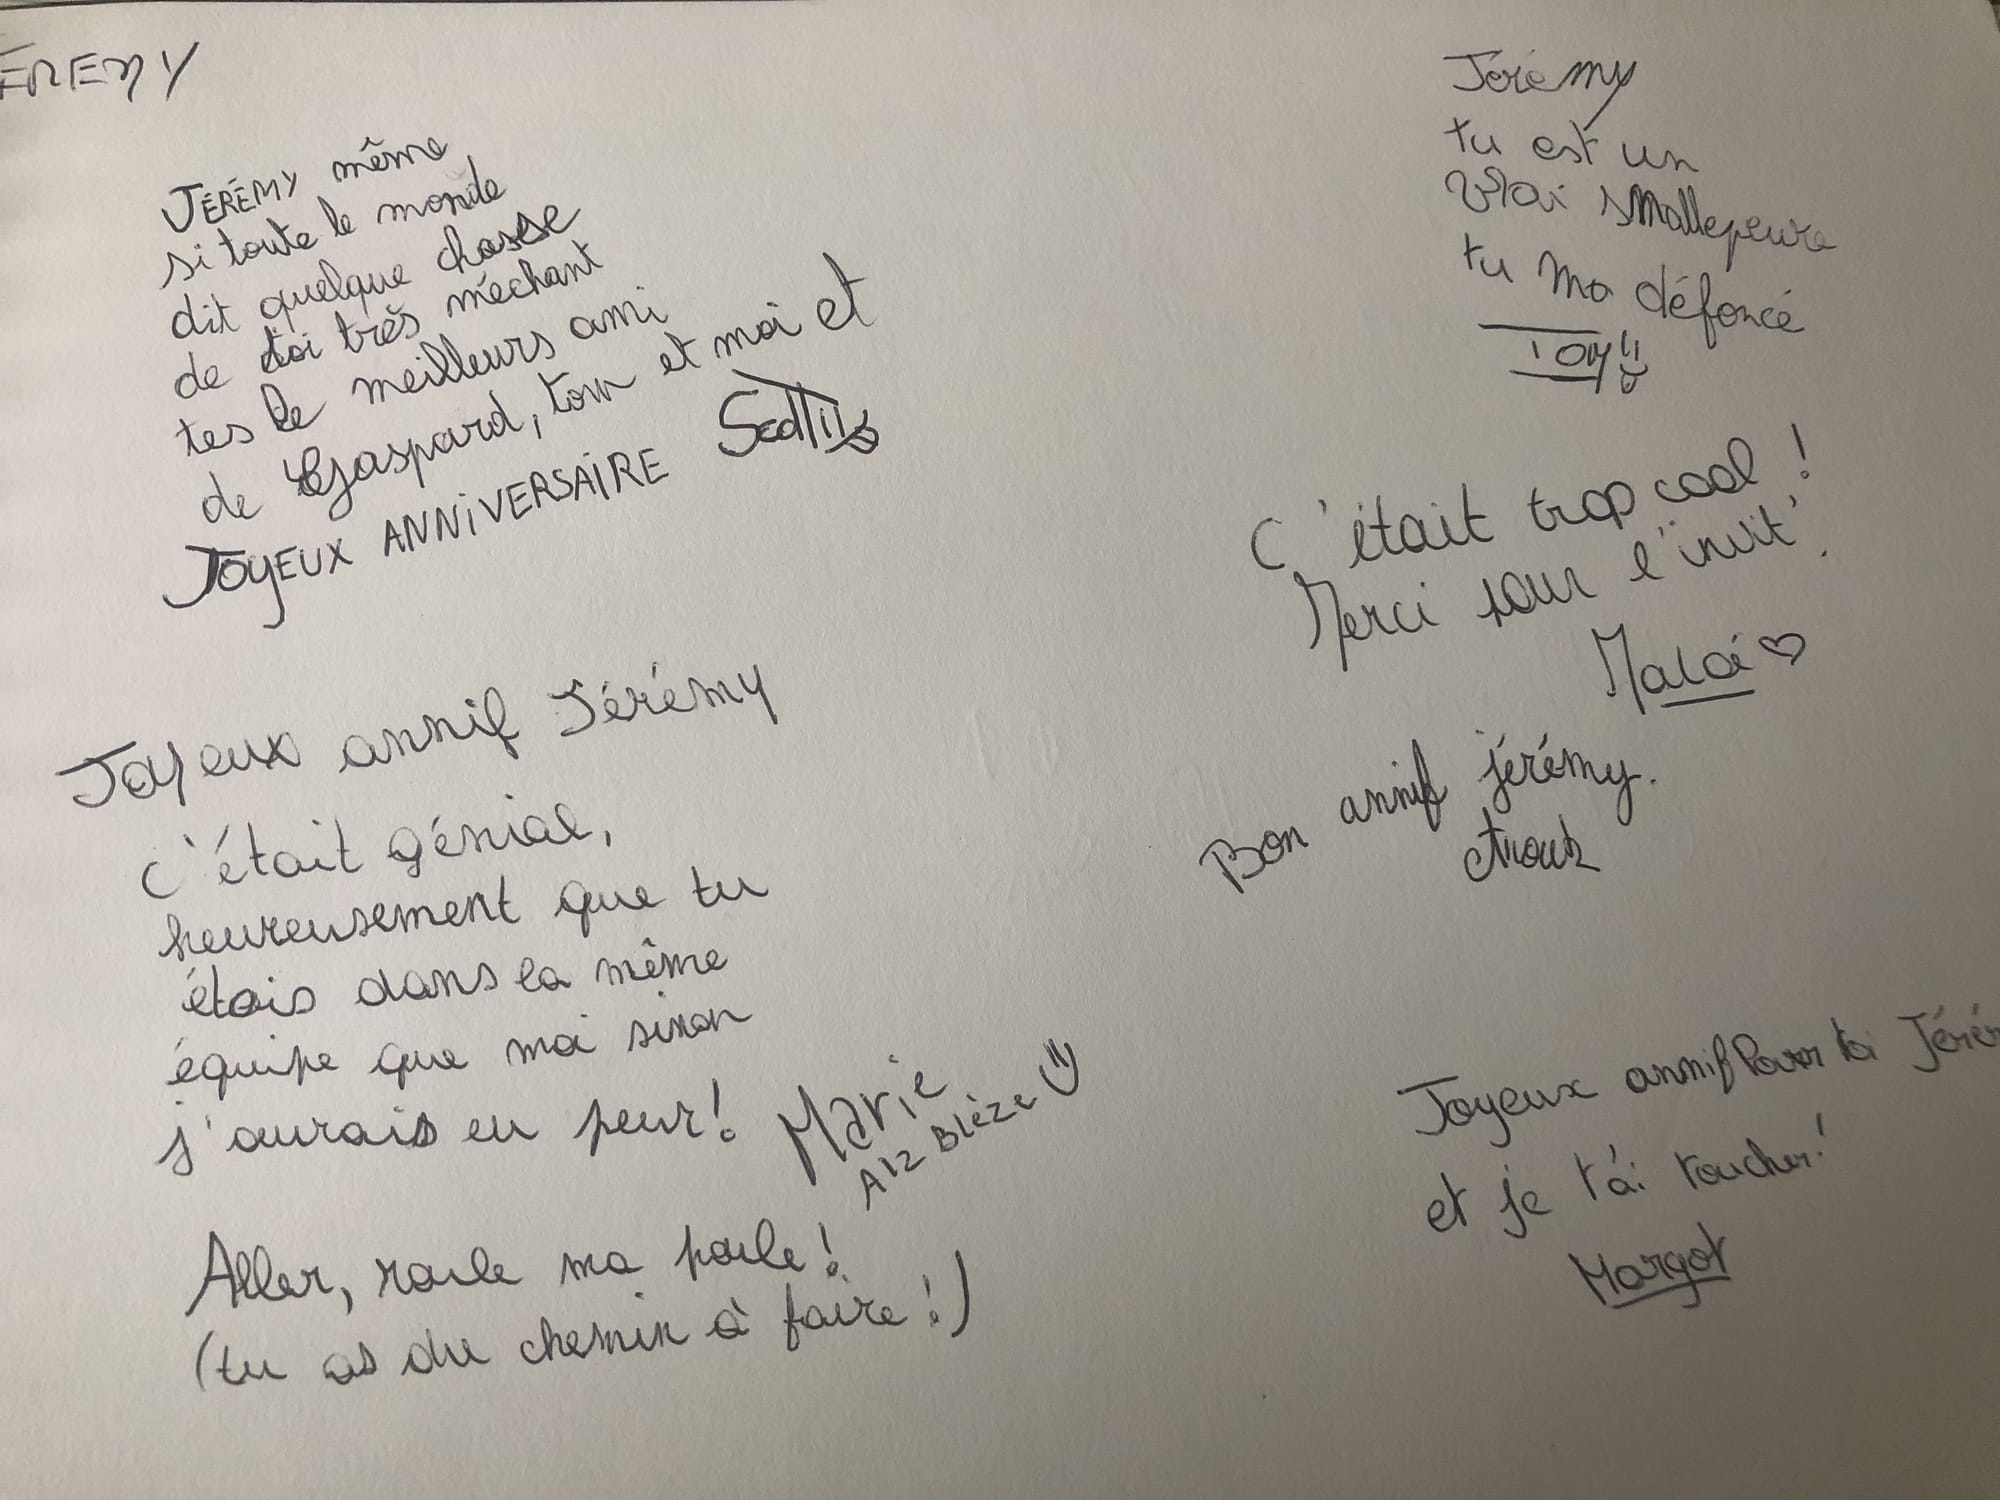 EREMY
JÉRÉMY même
si toute le monde
dit quelque chose
de toi très méchant
tes le meilleurs ami
de Gaspard, tom et moi et
JOYEUX ANNIVERSAIRE
Joyeux annif Jérémy
c'était génial,
heureusement que tu
étais dans la même
équipe que moi sinon
j'aurais eu peur! Marie
Aller, roule ma poule!
(tu as du chemin à faire!)
Jérémy
tu est un
vrai smallepeure
tu ma défoncé
Tom
C'était trop cool!
Merci pour l'invit'.
Maloé
Bon annif jérémy.
Joyeux annif Pour toi Jérér
et je t'ai toucher!
Margot